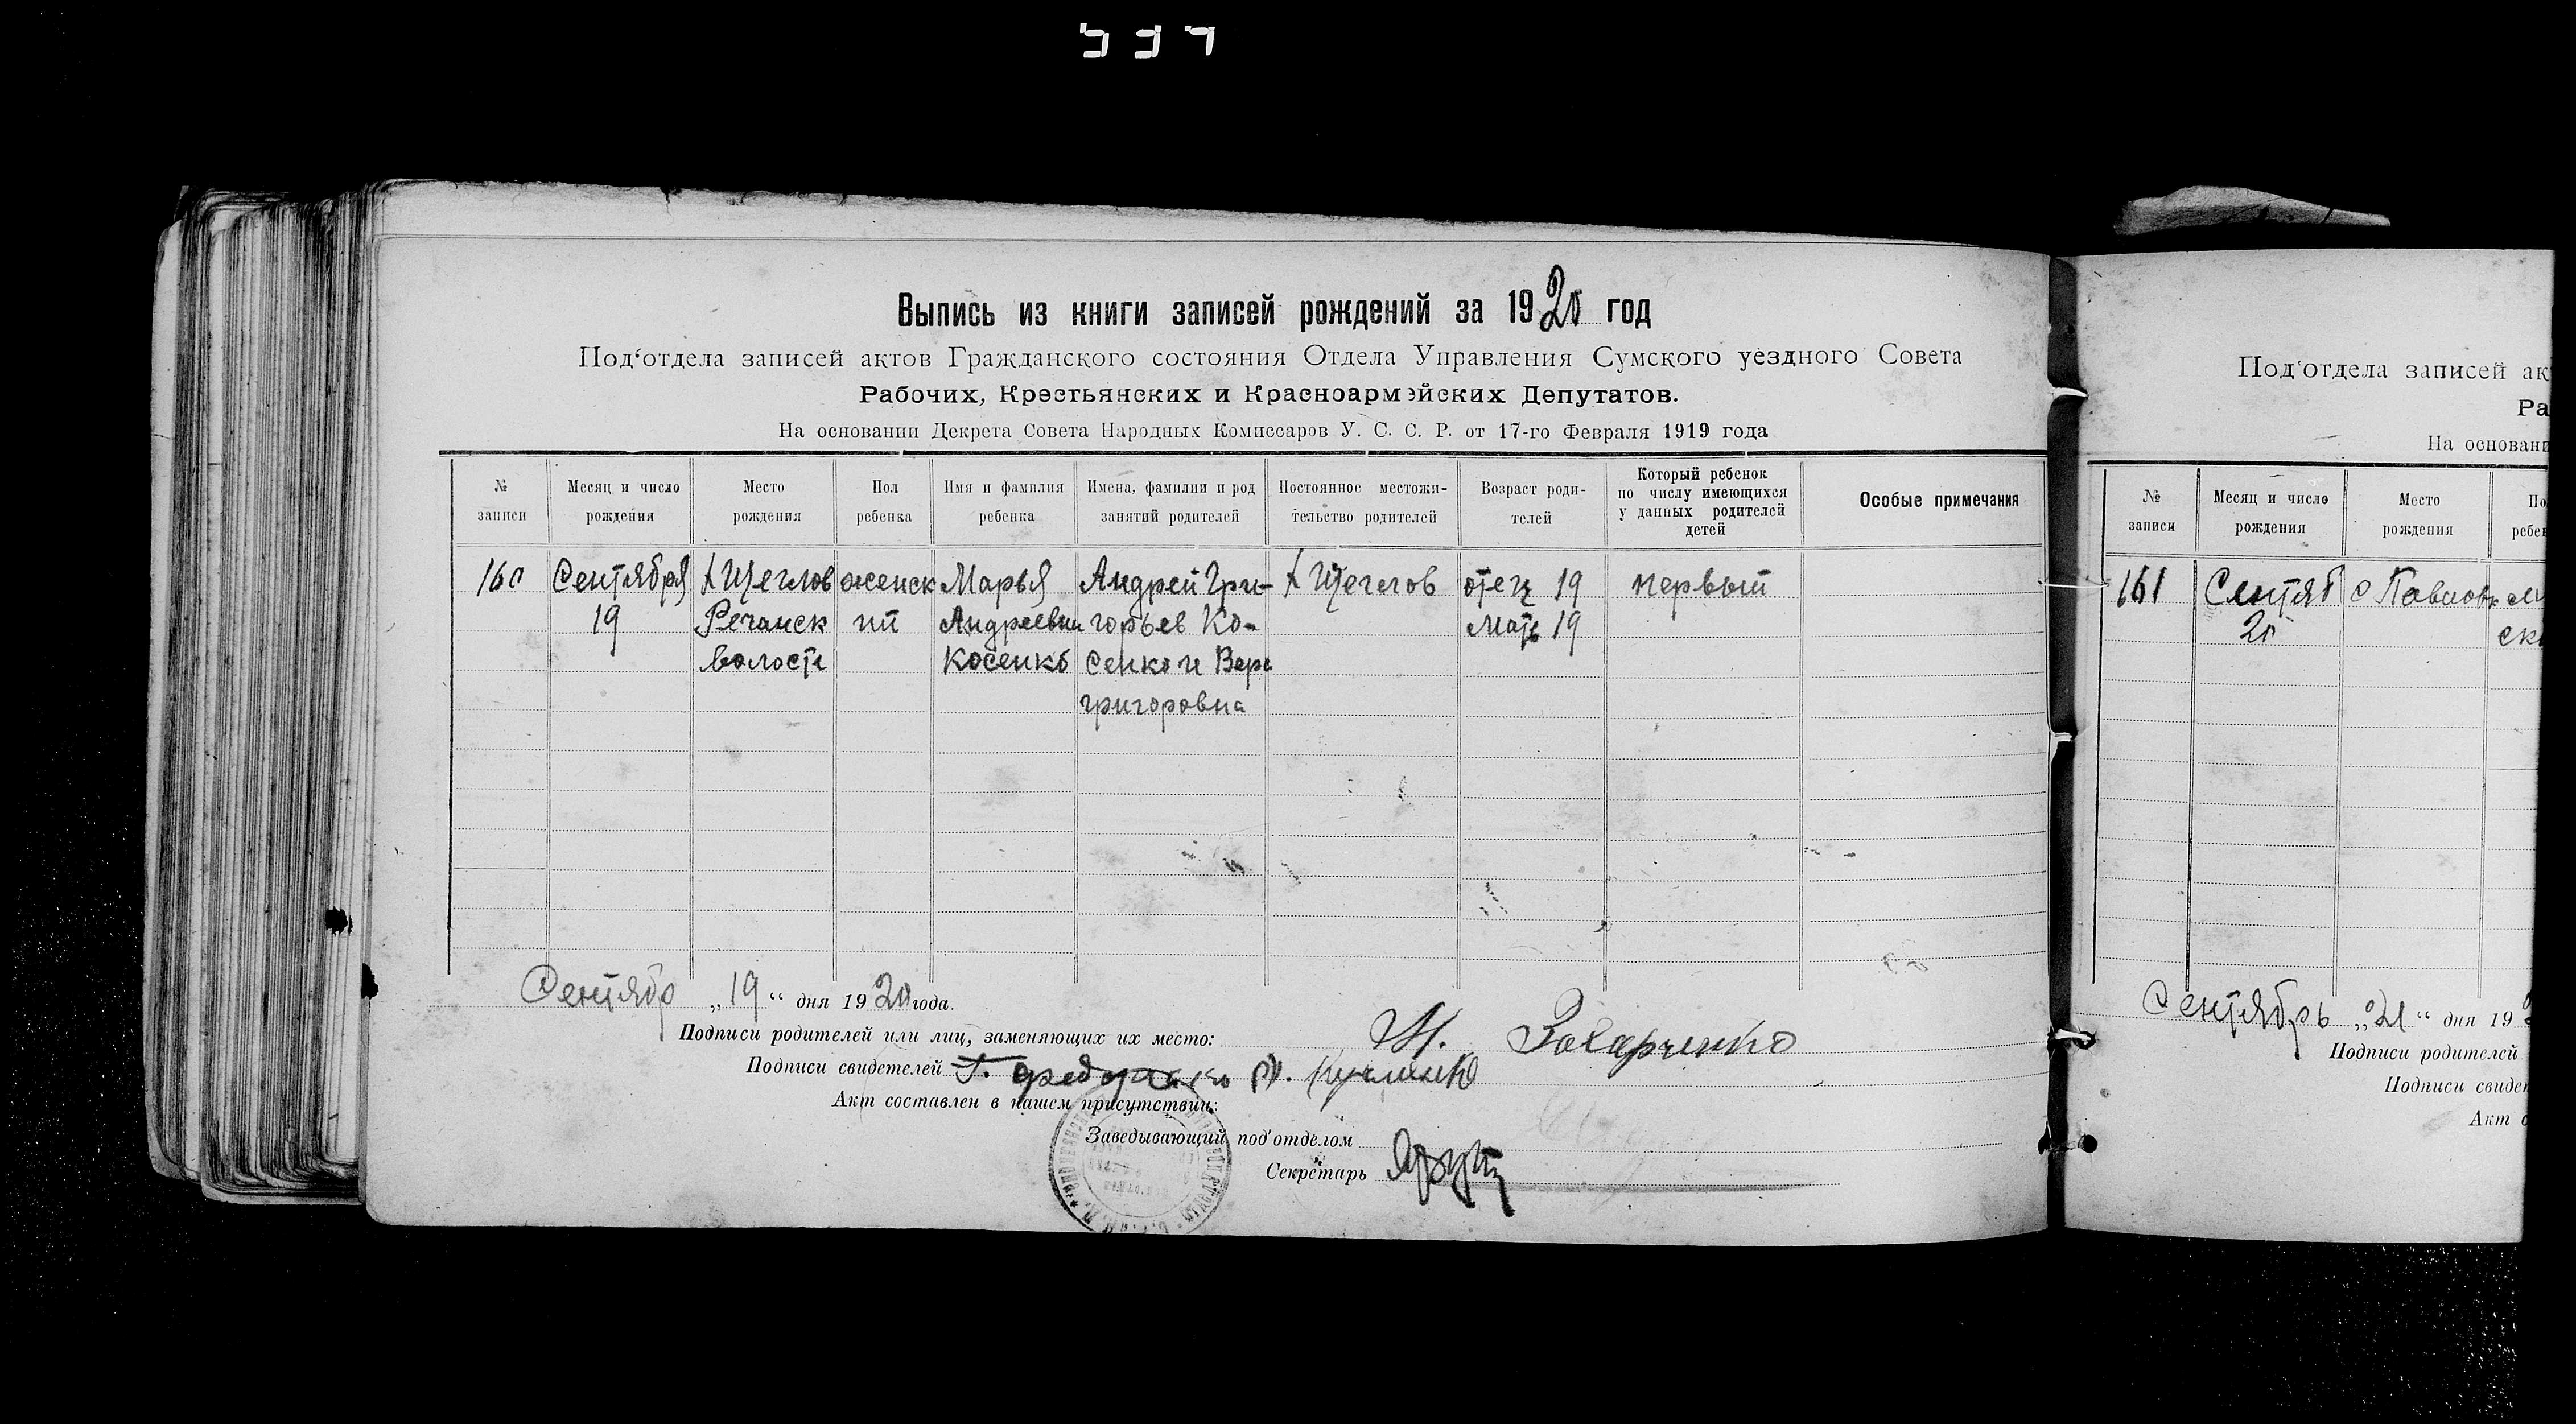 Выпись из книги записей рождений за 1920 год
Под'отдела записей актов Гражданского состояния Отдела Управления Сумского уездного Совета
Рабочих, Крестьянских и Красноармэйских Депутатов.
На основании Декрета Совета Народных Комиссаров У. С. С. Р. от 17-го Февраля 1919 года
№ записи
Месяц и число рождения
Место рождения
Пол ребенка
Имя и фамилия ребенка
Имена, фамилии и род занятий родителей
Постоянное местожи-тельство родителей
Возраст роди-телей
Который ребенок по числу имеющихся у данных родителей детей
Особые примечания
160 Сентября Х Щеглов женск Марья Андрей Гри- Х Щеглов отец 19 первый
19 Речанск пп Андреевна горьев Ко- мать 19
волости Косенко сенко и Вера
григоровна
Сентябр „19“ дня 1920 года.
Подписи родителей или лиц, заменяющих их место: Захарченко
Подписи свидетелей
Акт составлен в нашем присутствии:
Заведывающий под'отделом
Секретарь
Под'отдела записей ак
Ра
На основани
№ записи
Месяц и число рождения
Место рождения
По ребен
161 Сентяб с Павловк
20
Сентябрь „21“ дня 19
Подписи родителей
Подписи свидет
Акт с